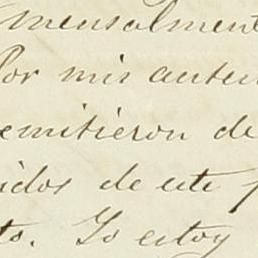 mensualment
Por mis antem
emitieron de
idos de este p
to. Yo estoy